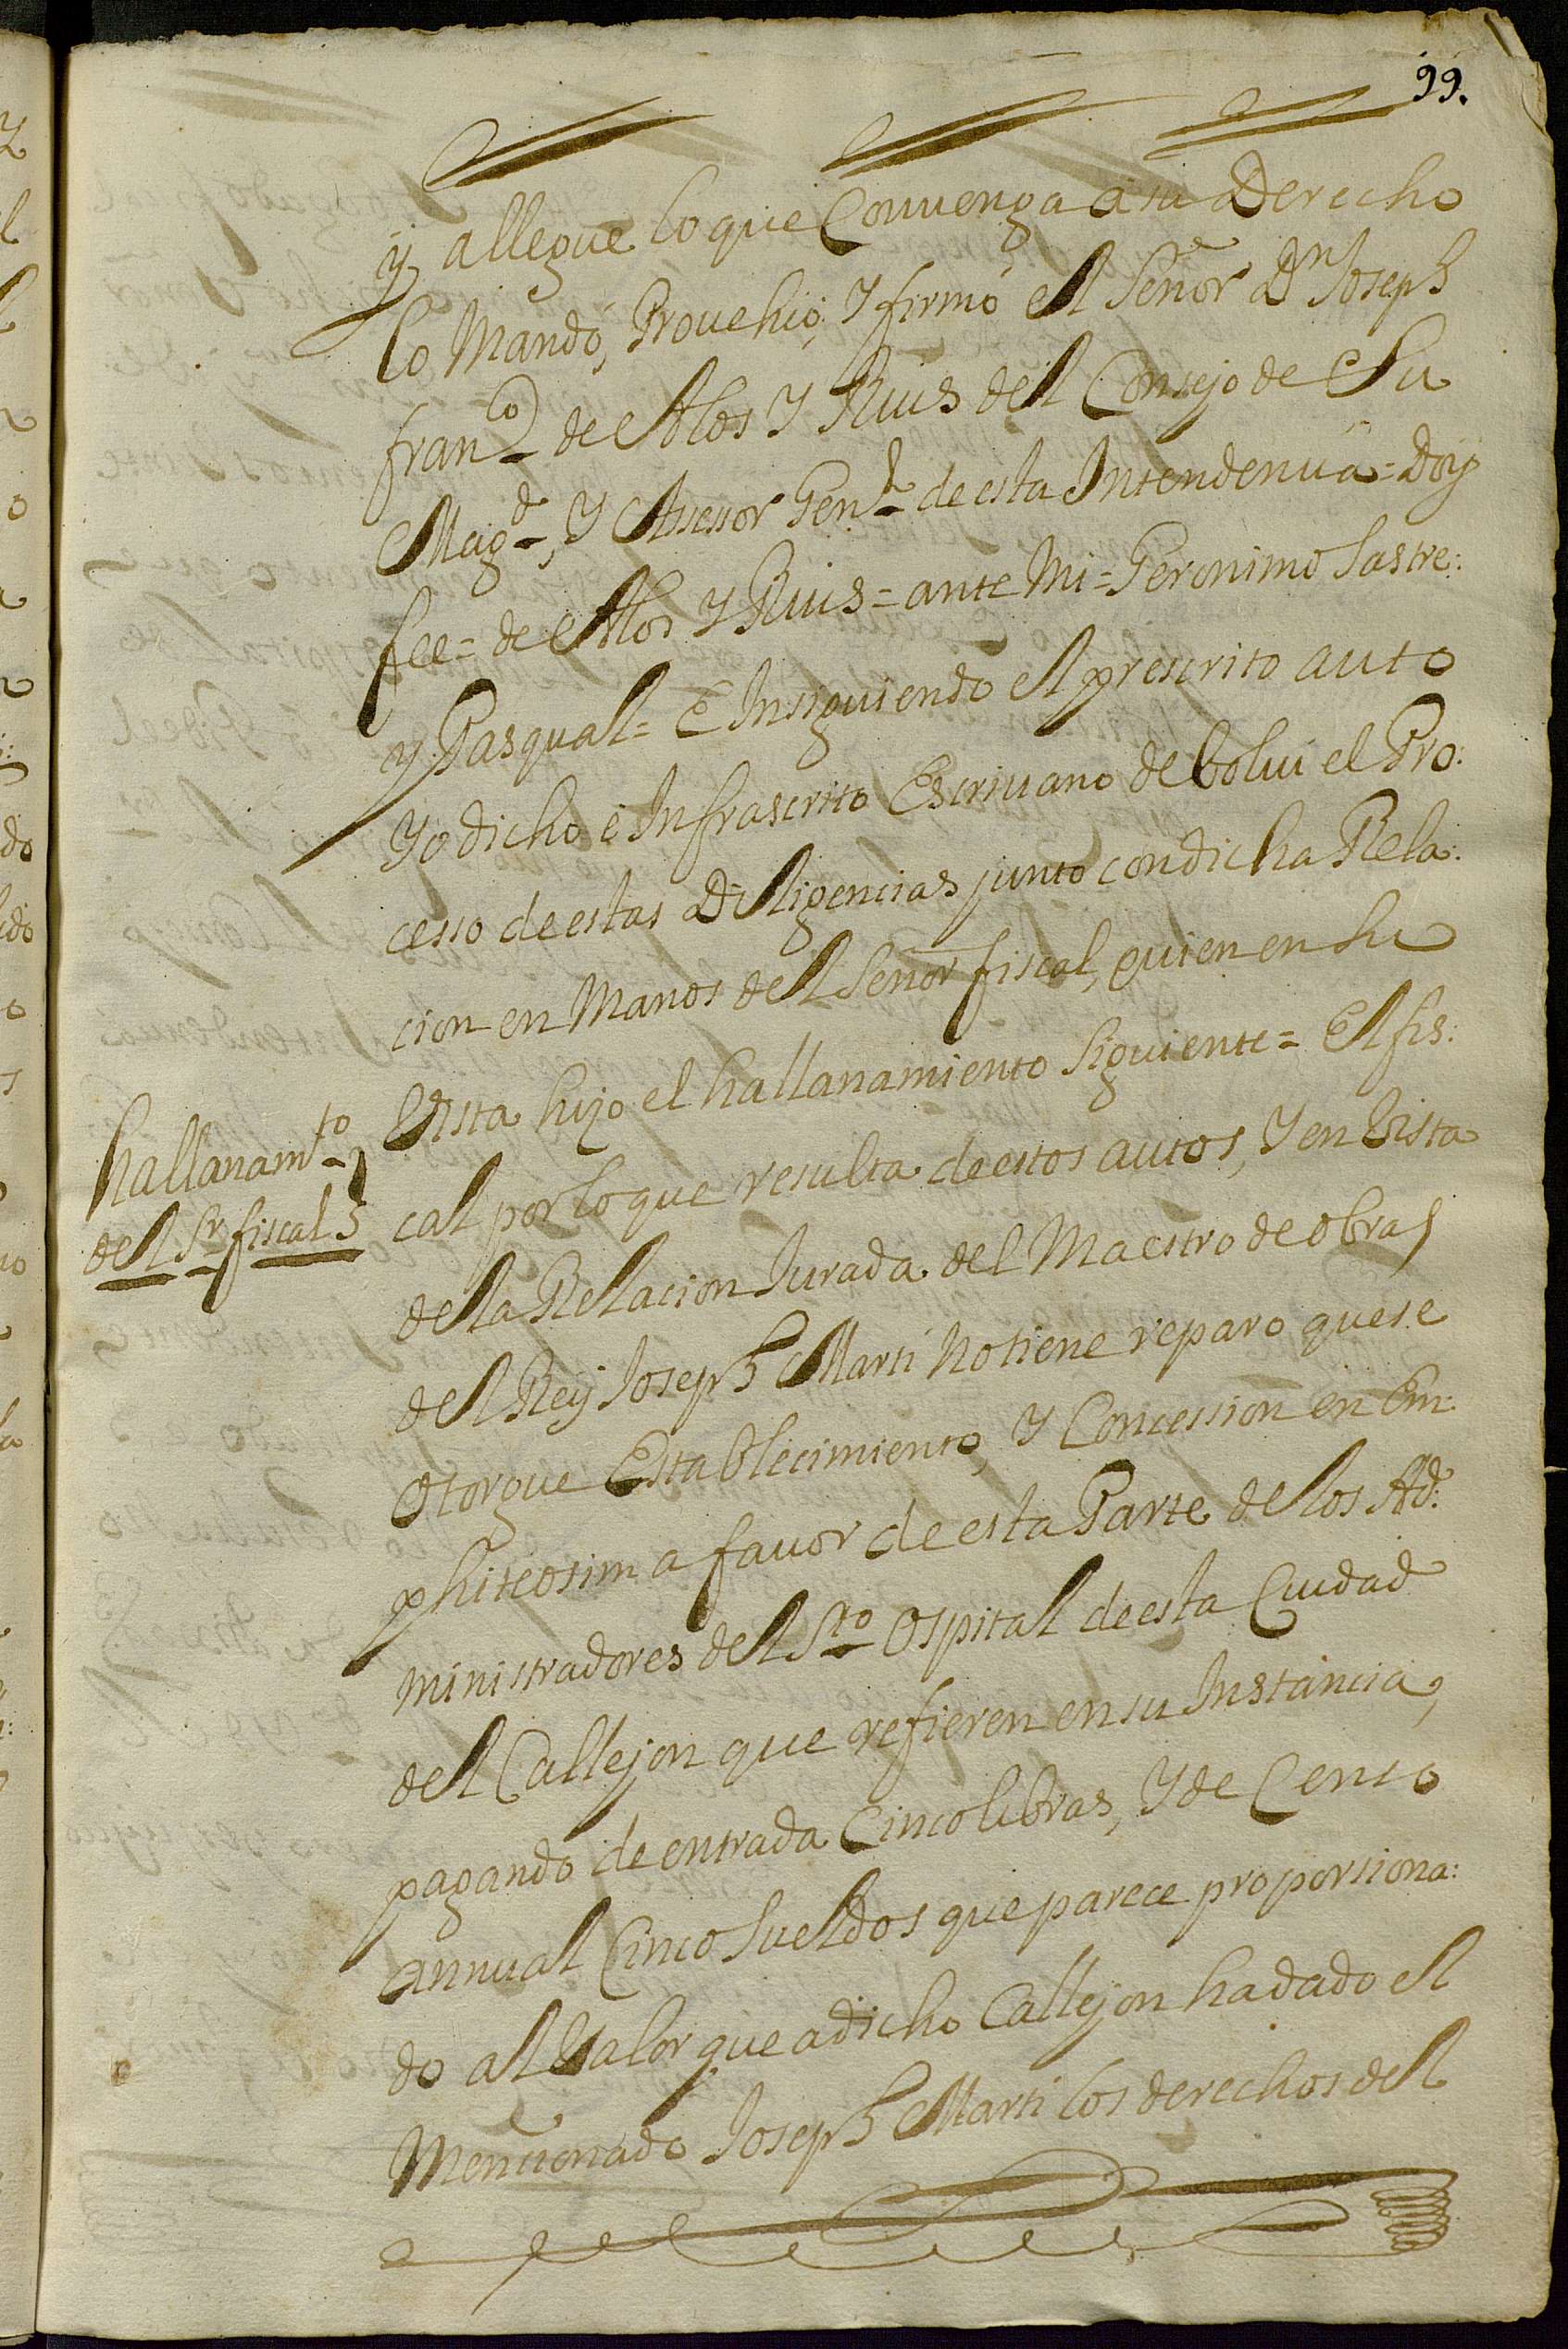 99.
y allegue lo que Convenga a su Derecho
lo Mandó, Provehió, y firmó el Señor Dn. Joseph
franco. de Alos y Rius del Consejo de Su
Magd., y Assessor Genl. de esta Intendencia = Doy
fee = de Alos y Rius = ante Mi = Geronimo Sastre:
y Pasqual = E Insiguiendo el prescrito auto
yo dicho é Infrascrito Escrivano debolvi el Pro:
cesso de estas Diligencias junto con dicha Rela:
cion en Manos del Señor fiscal, quien en Su
Vista hizo el hallanamiento Siguiente = El fis:
hallanamto.
del Sr. fiscal
cal por lo que resulta de estos autos, y en Vista
de la Relacion Jurada del Maestro de obras
del Rey Joseph Martí No tiene reparo que se
otorgue Establecimiento, y Concession en Em:
phiteosim a favor de esta Parte de los Ad:
ministradores del Sto. Ospital de esta Ciudad
del Callejon que refieren en su Instancia,
pagando de entrada Cinco libras, y de Censo
annual Cinco Sueldos que parece proporsiona:
do al Valor que a dicho Callejon ha dado el
Mencionado Joseph Marti los derechos del